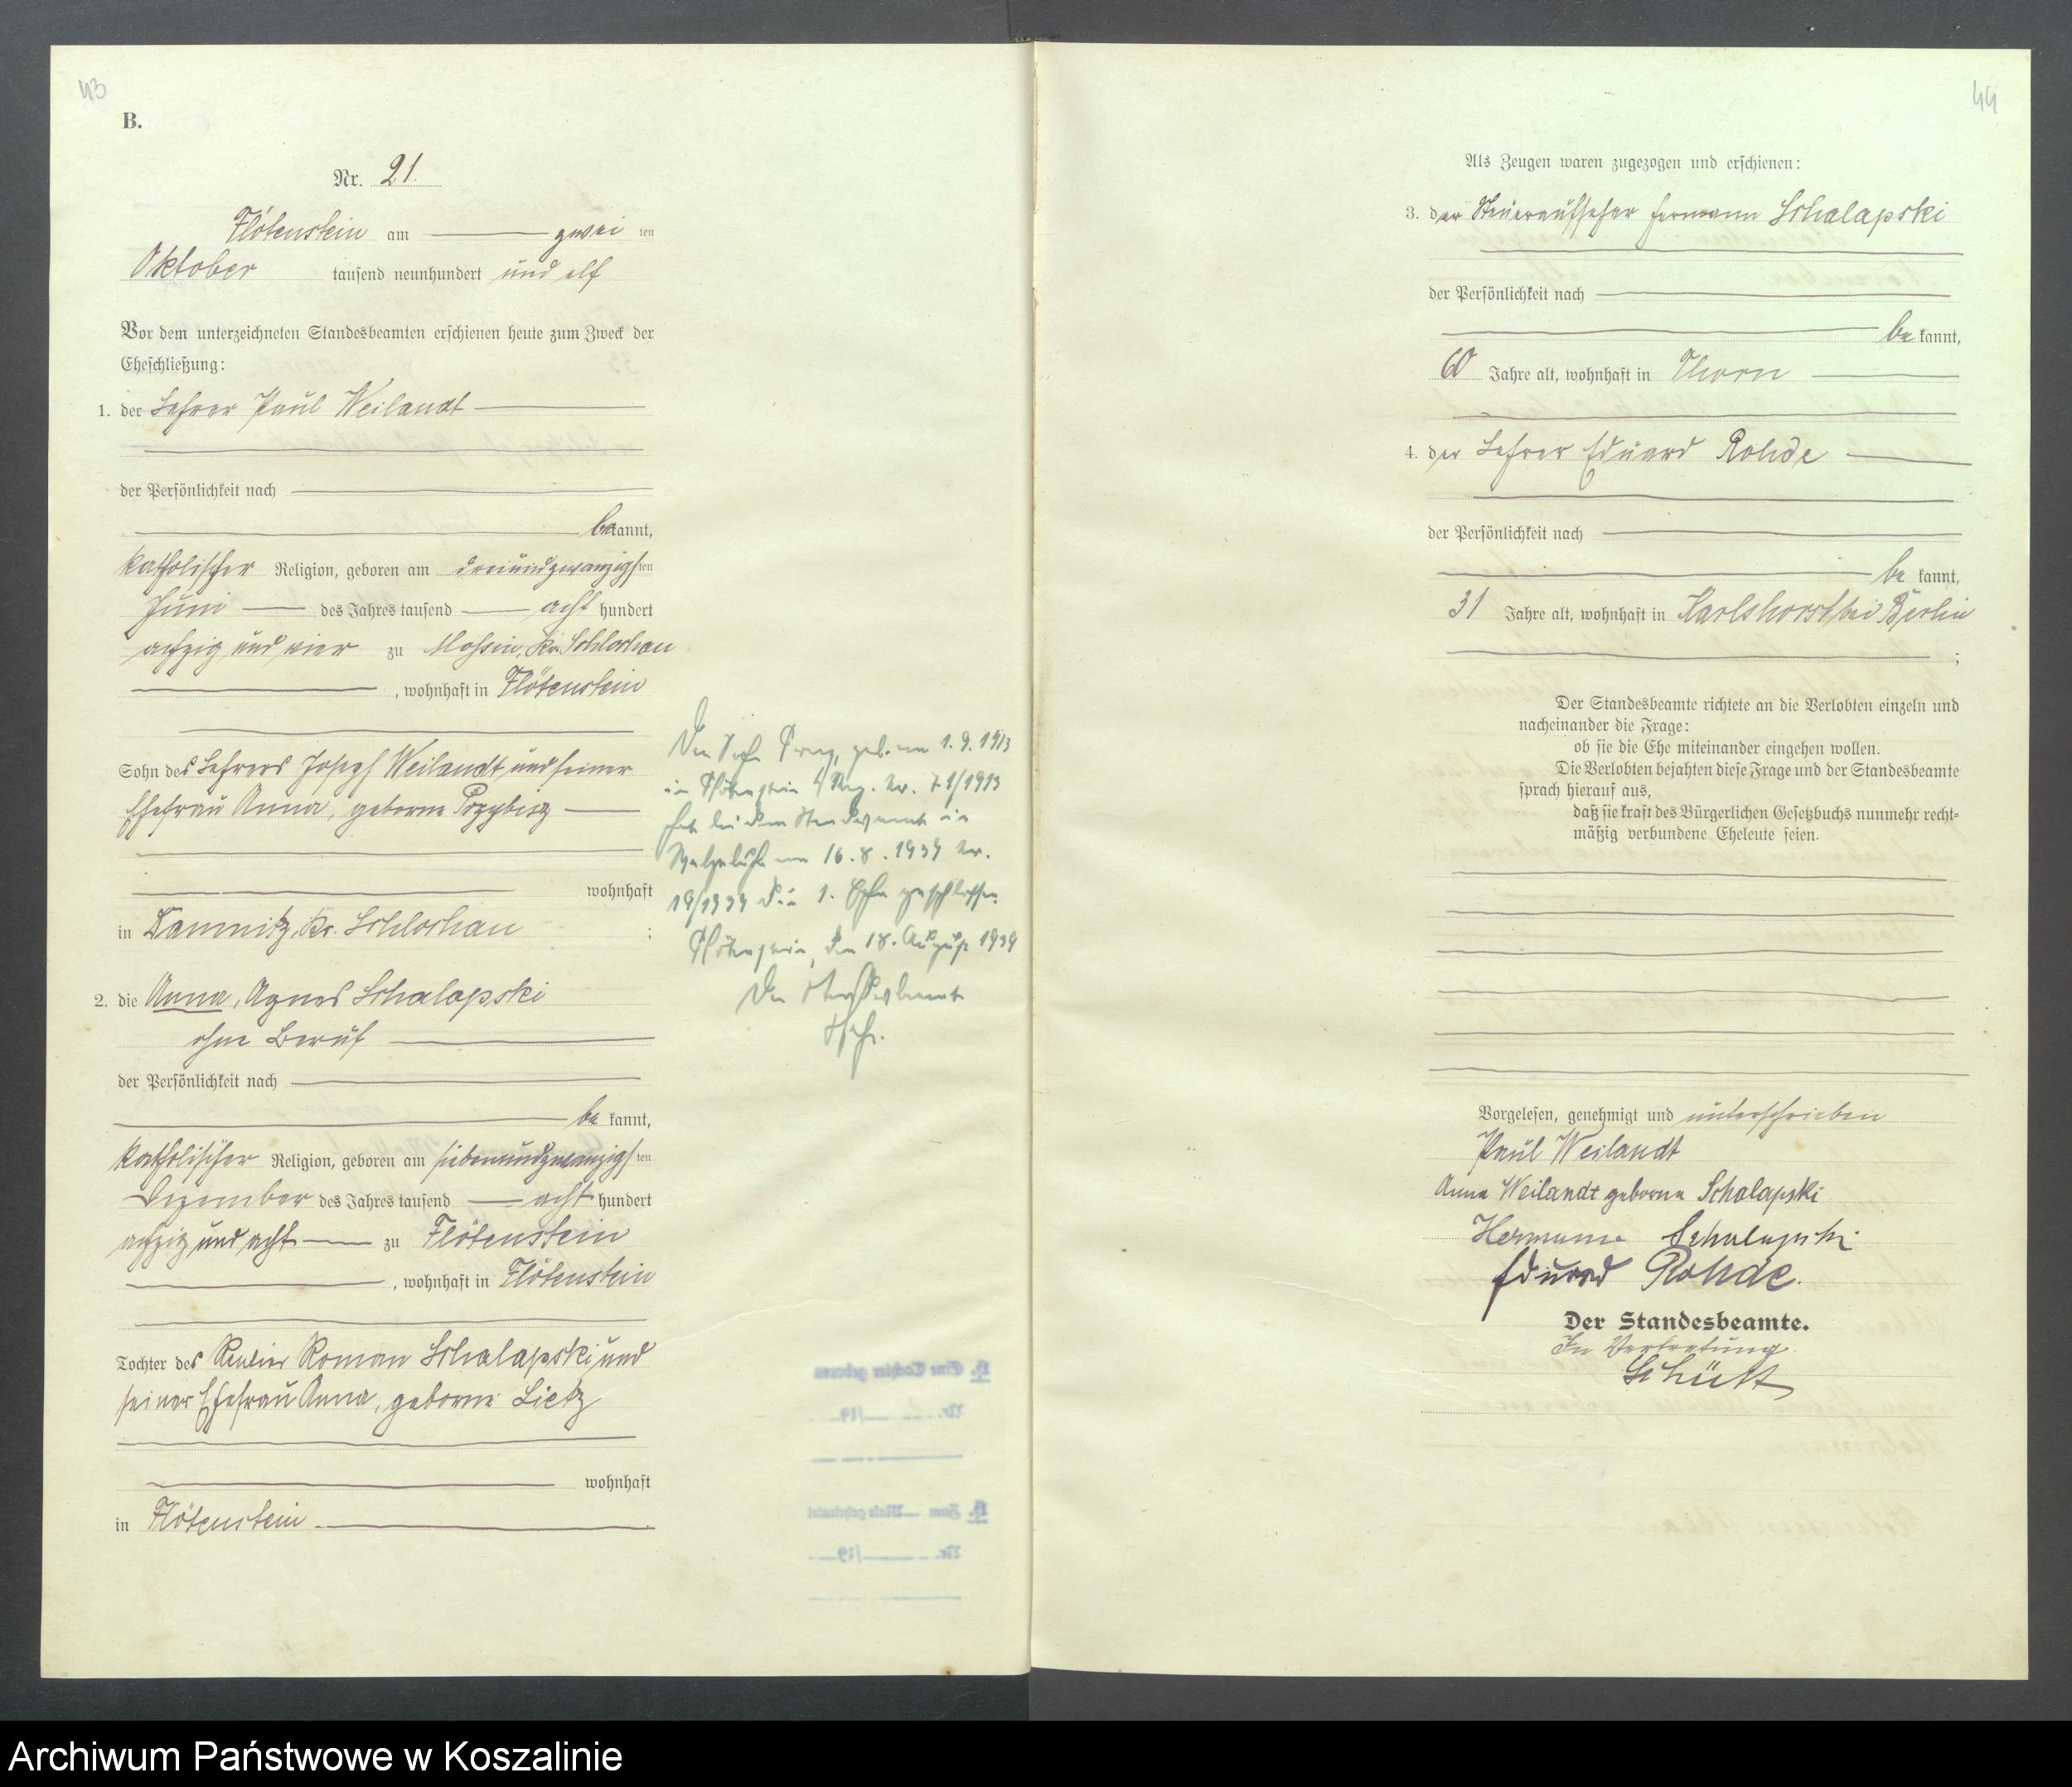 43
B.
Nr. 21.
Flötenstein am zwei ten
Oktober tausend neunhundert und elf
Vor dem unterzeichneten Standesbeamten erschienen heute zum Zweck der
Eheschließung:
1. der Lehrer Paul Weilandt
der Persönlichkeit nach
be kannt,
katholischer Religion, geboren am dreiundzwanzigsten
Juni des Jahres tausend acht hundert
achtzig und vier zu Mossin, Kr. Schlochau
, wohnhaft in Flötenstein
Sohn des Lehrers Joseph Weilandt und seiner
Ehefrau Anna, geborne
wohnhaft
in Damnitz, Kr. Schlochau ;
2. die Anna, Agnes Schalapski
ohne Beruf
der Persönlichkeit nach
be kannt,
katholischer Religion, geboren am siebenundzwanzigsten
Dezember des Jahres tausend acht hundert
achtzig und acht zu Flötenstein
, wohnhaft in Flötenstein
Tochter des Rentier Roman Schalapski und
seiner Ehefrau Anna, geborne Lietz
wohnhaft
in Flötenstein.
geb. am 1.9.1913
in Flötenstein Reg. Nr. 71/1913
hat bei dem Standesamt in
am 16.8.1939 Nr.
19/1939 die 1. Ehe geschlossen.
Flötenstein, den 18. August 1939
Der Standesbeamte
44
Als Zeugen waren zugezogen und erschienen:
3. der Steueraufseher Hermann Schalapski
der Persönlichkeit nach
be kannt,
60 Jahre alt, wohnhaft in Thorn
4. der Lehrer Eduard Rohde
der Persönlichkeit nach
be kannt,
31 Jahre alt, wohnhaft in Karlshorst bei Berlin
;
Der Standesbeamte richtete an die Verlobten einzeln und
nacheinander die Frage:
ob sie die Ehe miteinander eingehen wollen.
Die Verlobten bejahten diese Frage und der Standesbeamte
sprach hierauf aus,
daß sie kraft des Bürgerlichen Gesetzbuchs nunmehr recht-
mäßig verbundene Eheleute seien.
Vorgelesen, genehmigt und unterschrieben
Paul Weilandt
Anna Weilandt geborne Schalapski
Hermann Schalapski
Eduard Rohde.
Der Standesbeamte.
In Vertretung
Schütt
Archiwum Państwowe w Koszalinie